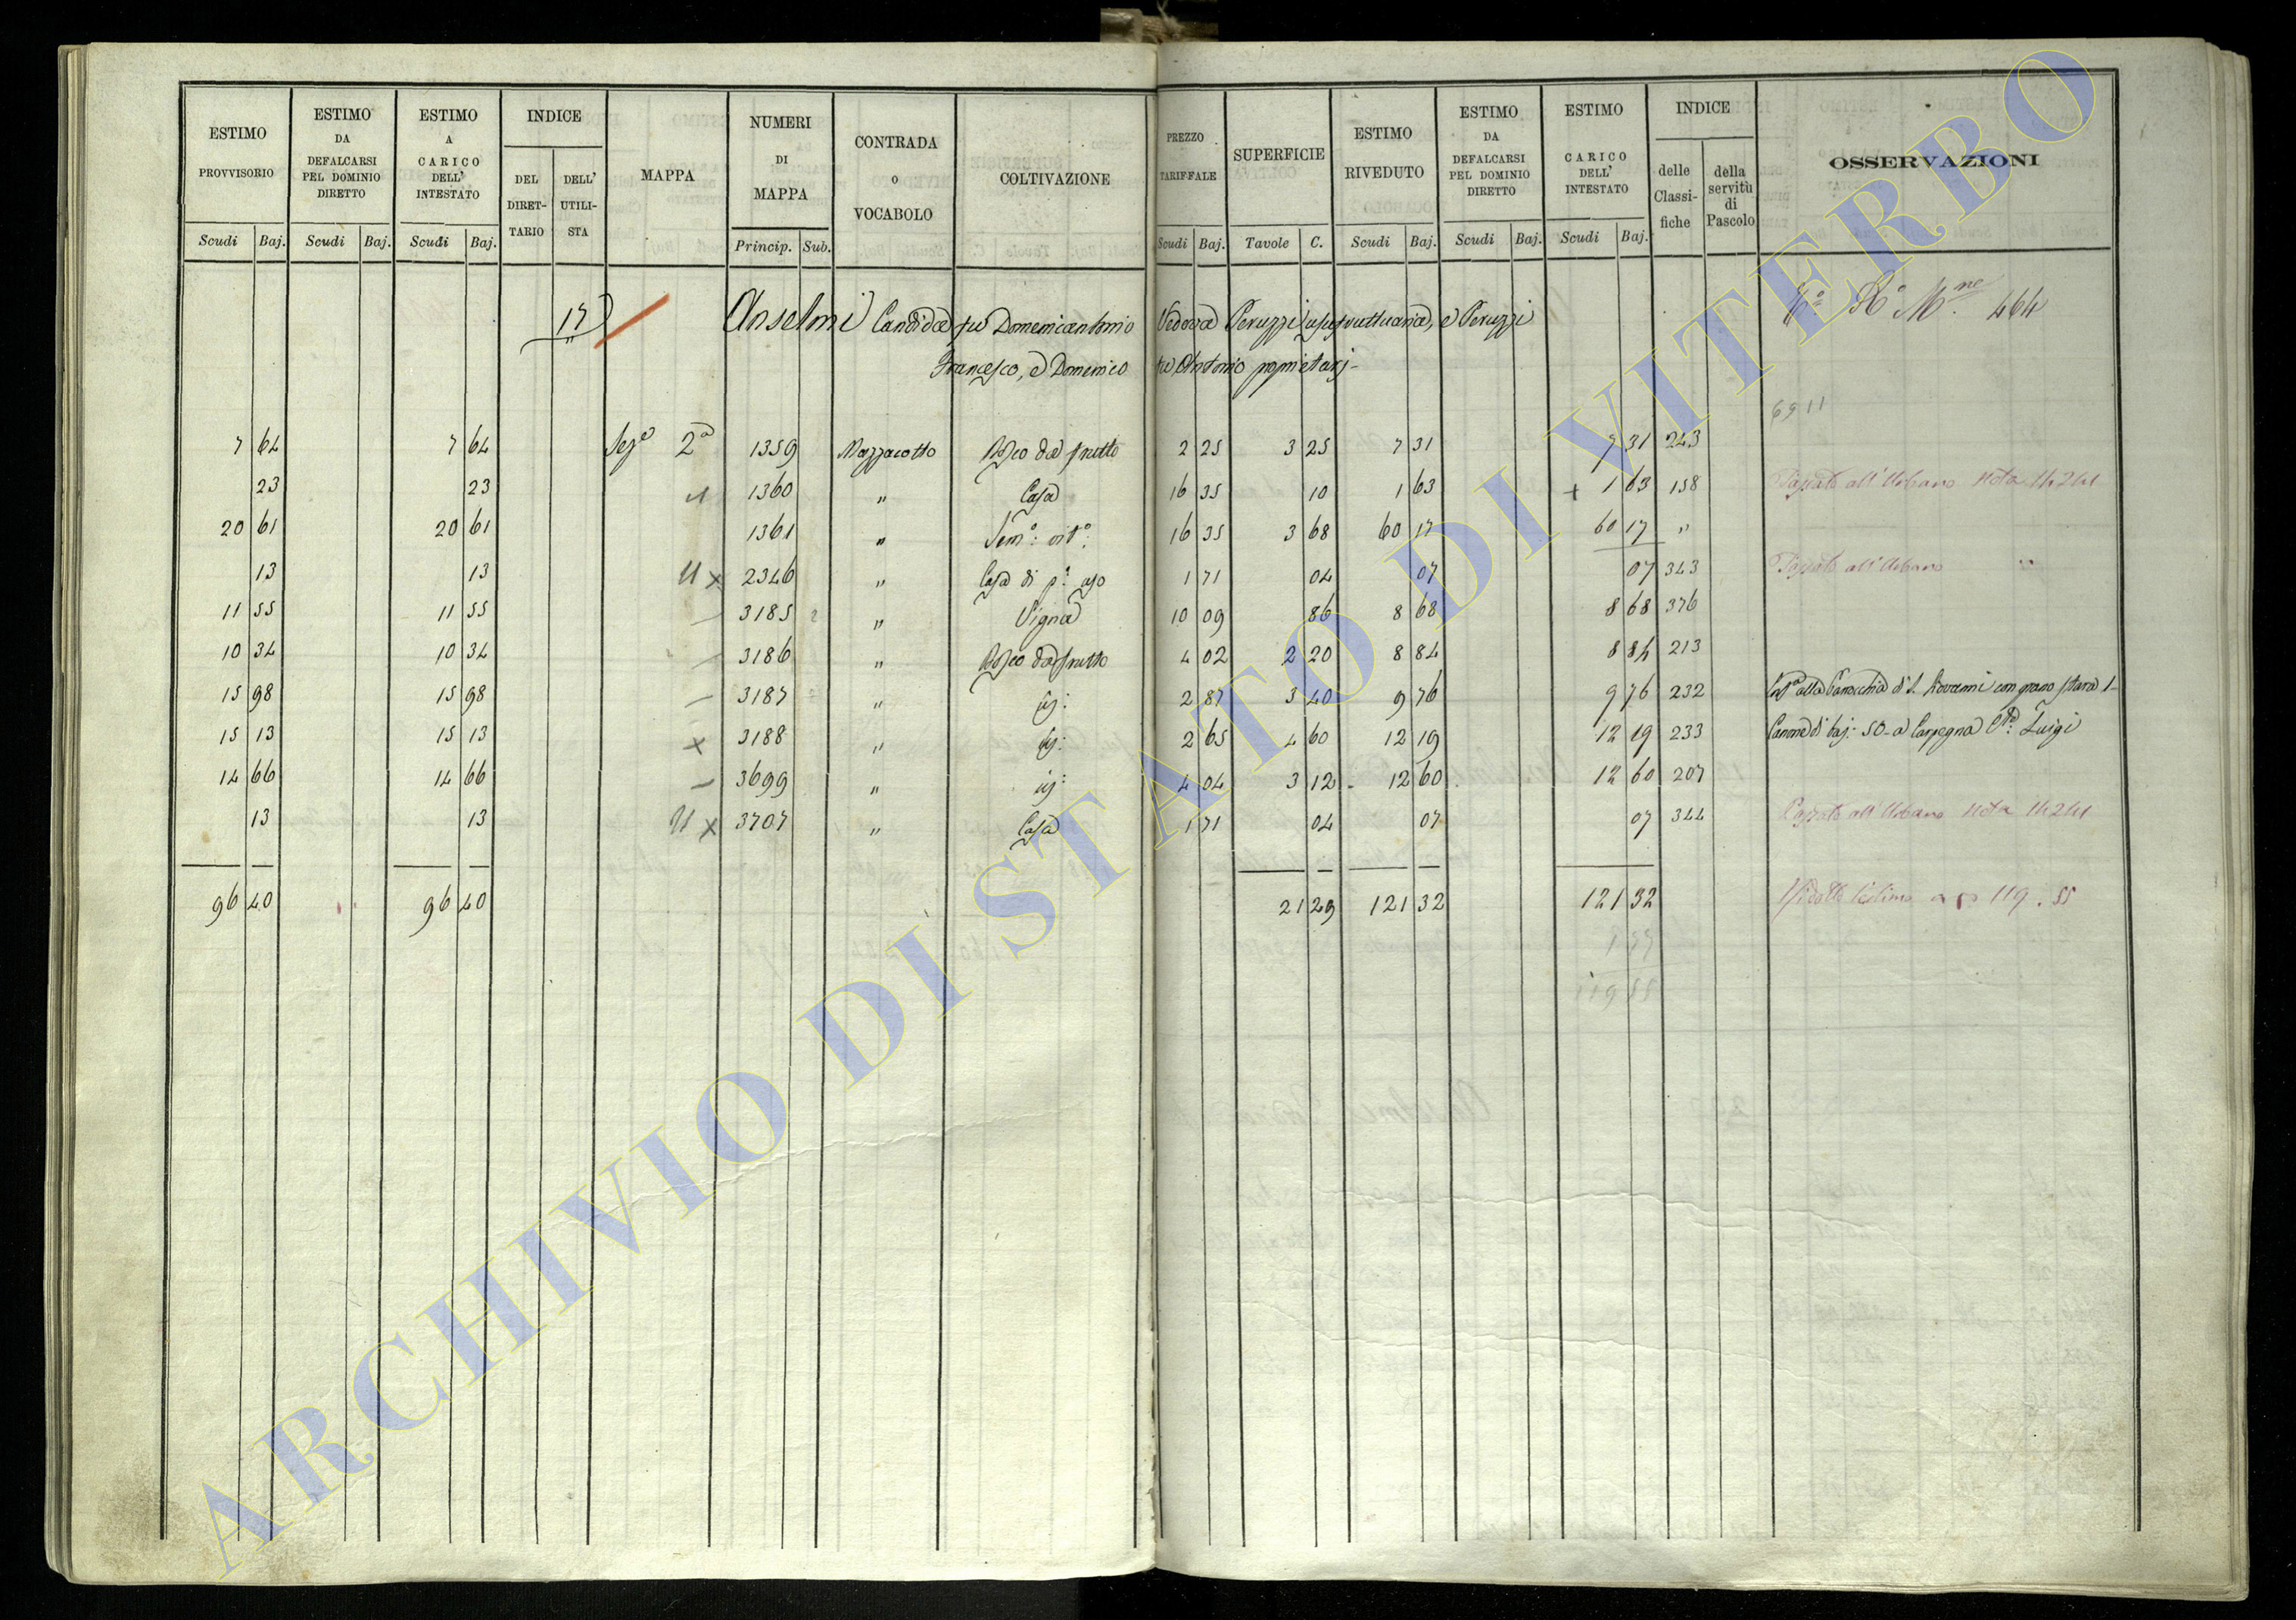 ESTIMO PROVVISORIO | ESTIMO DA DEFALCARSI PEL DOMINIO DIRETTO | ESTIMO A CARICO DELL' INTESTATO | INDICE DEL DIRET-TARIO | DELL' UTILI-STA | MAPPA | NUMERI DI MAPPA | CONTRADA O VOCABOLO | COLTIVAZIONE | PREZZO TARIFFALE | SUPERFICIE | ESTIMO RIVEDUTO | ESTIMO DA DEFALCARSI PEL DOMINIO DIRETTO | ESTIMO A CARICO DELL' INTESTATO | INDICE delle Classi-fiche | della servitù di Pascolo | OSSERVAZIONI
Scudi Baj. | Scudi Baj. | Scudi Baj. | Princip. Sub. | Scudi Baj. | Tavole C. | Scudi Baj. | Scudi Baj. | Scudi Baj.
17 Anselmi Candida fu Domenicantonio Vedova Peruzzi usufruttuaria, e Peruzzi 464
Francesco, e Domenico fu Antonio proprietarj
6911
7 64 | 7 64 | Seze 2a | 1359 | Mazzacotto | Bosco da frutto | 2 25 | 3 25 | 7 31 | 7 31 | 243
23 | 23 | U | 1360 | " | Casa | 16 35 | 10 | 1 63 | + 1 63 | 158 | Passato all'Urbano Nota
20 61 | 20 61 | 1361 | " | Semo: vito: | 16 35 | 3 68 | 60 17 | 60 17 | "
13 | 13 | U x | 2346 | " | Casa di pa: uso | 1 71 | 04 | 07 | 07 | 343 | Passato all'Urbano "
11 55 | 11 55 | 3185 | " | Vigna | 10 09 | 86 | 8 68 | 8 68 | 376
10 34 | 10 34 | 3186 | " | Bosco da frutto | 4 02 | 2 20 | 8 84 | 8 84 | 213
15 98 | 15 98 | 3187 | " | id: | 2 87 | 3 40 | 9 76 | 9 76 | 232 | alla Parocchia di S. Giovanni con grano stara 1
15 13 | 15 13 | x | 3188 | " | id: | 2 65 | 4 60 | 12 19 | 12 19 | 233 | Canone di baj: 50 a Carpegna Luigi
14 66 | 14 66 | 3699 | " | id: | 4 04 | 3 12 | 12 60 | 12 60 | 207
13 | 13 | U x | 3707 | " | Casa | 1 71 | 04 | 07 | 07 | 344 | Passato all'Urbano Nota
96 40 | 96 40 | 21 29 | 121 32 | 121 32 | Ridotto l'estimo a 119.55
1 77
119 55
ARCHIVIO DI STATO DI VITERBO